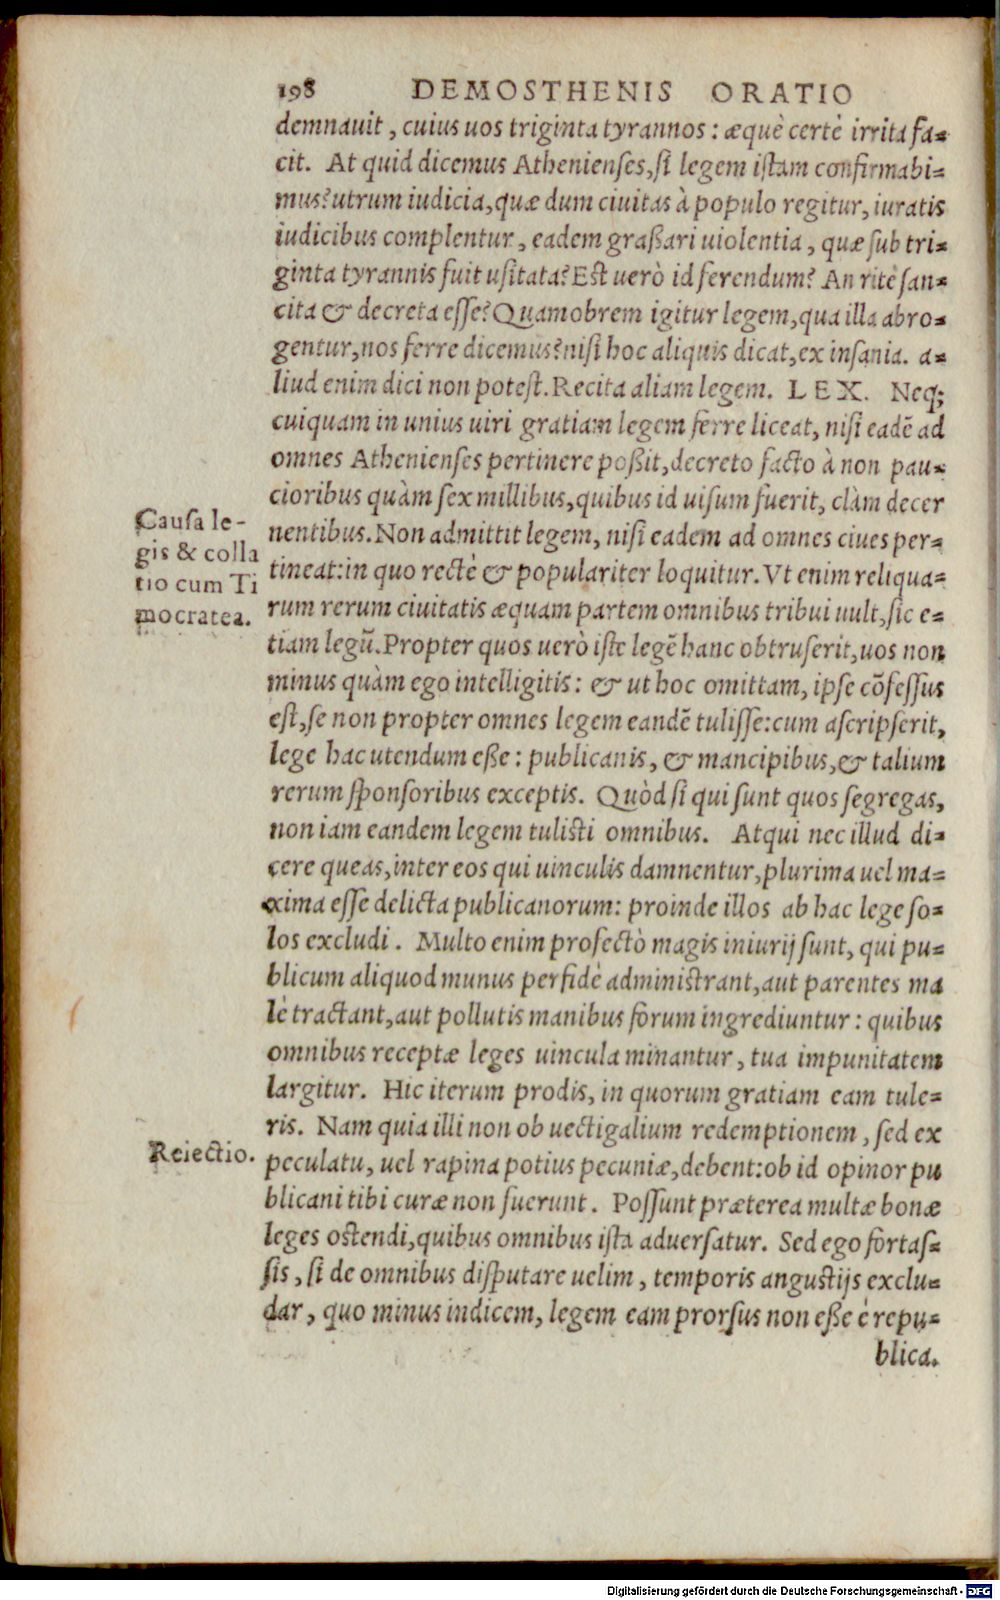 198 DEMOSTHENIS ORATIO
demnauit, cuius uos triginta tyrannos: æquè certè irrita fa-
cit. At quid dicemus Athenienses, si legem istam confirmabi-
mus? utrum iudicia, quæ dum ciuitas à populo regitur, iuratis
iudicibus complentur, eadem graßari uiolentia, quæ sub tri-
ginta tyrannis fuit usitata? Est uerò id ferendum? An ritè san-
cita & decreta esse? Quamobrem igitur legem, qua illa abro-
gentur, nos ferre dicemus? nisi hoc aliquis dicat, ex insania. a-
liud enim dici non potest. Recita aliam legem. LEX. Neq;
cuiquam in unius uiri gratiam legem ferre liceat, nisi eadē ad
omnes Athenienses pertinere poßit, decreto facto à non pau-
cioribus quàm sex millibus, quibus id uisum fuerit, clàm decer
nentibus. Non admittit legem, nisi eadem ad omnes ciues per-
tineat: in quo rectè & populariter loquitur. Vt enim reliqua-
rum rerum ciuitatis æquam partem omnibus tribui uult, sic e-
tiam legū. Propter quos uerò iste legē hanc obtruserit, uos non
minus quàm ego intelligitis: & ut hoc omittam, ipse cōfessus
est, se non propter omnes legem eandē tulisse: cum ascripserit,
lege hac utendum eße: publicanis, & mancipibus, & talium
rerum sponsoribus exceptis. Quòd si qui sunt quos segregas,
non iam eandem legem tulisti omnibus. Atqui nec illud di-
cere queas, inter eos qui uinculis damnentur, plurima uel ma-
xima esse delicta publicanorum: proinde illos ab hac lege so-
los excludi. Multo enim profectò magis iniurij sunt, qui pu-
blicum aliquod munus perfidè administrant, aut parentes ma
lè tractant, aut pollutis manibus forum ingrediuntur: quibus
omnibus receptæ leges uincula minantur, tua impunitatem
largitur. Hic iterum prodis, in quorum gratiam eam tule-
ris. Nam quia illi non ob uectigalium redemptionem, sed ex
peculatu, uel rapina potius pecuniæ, debent: ob id opinor pu
blicani tibi curæ non fuerunt. Possunt præterea multæ bonæ
leges ostendi, quibus omnibus ista aduersatur. Sed ego fortas-
sis, si de omnibus disputare uelim, temporis angustijs exclu-
dar, quo minus indicem, legem eam prorsus non eße è repu-
blica.
Causa le-
gis & colla
tio cum Ti
mocratea.
Reiectio.
Digitalisierung gefördert durch die Deutsche Forschungsgemeinschaft - DFG